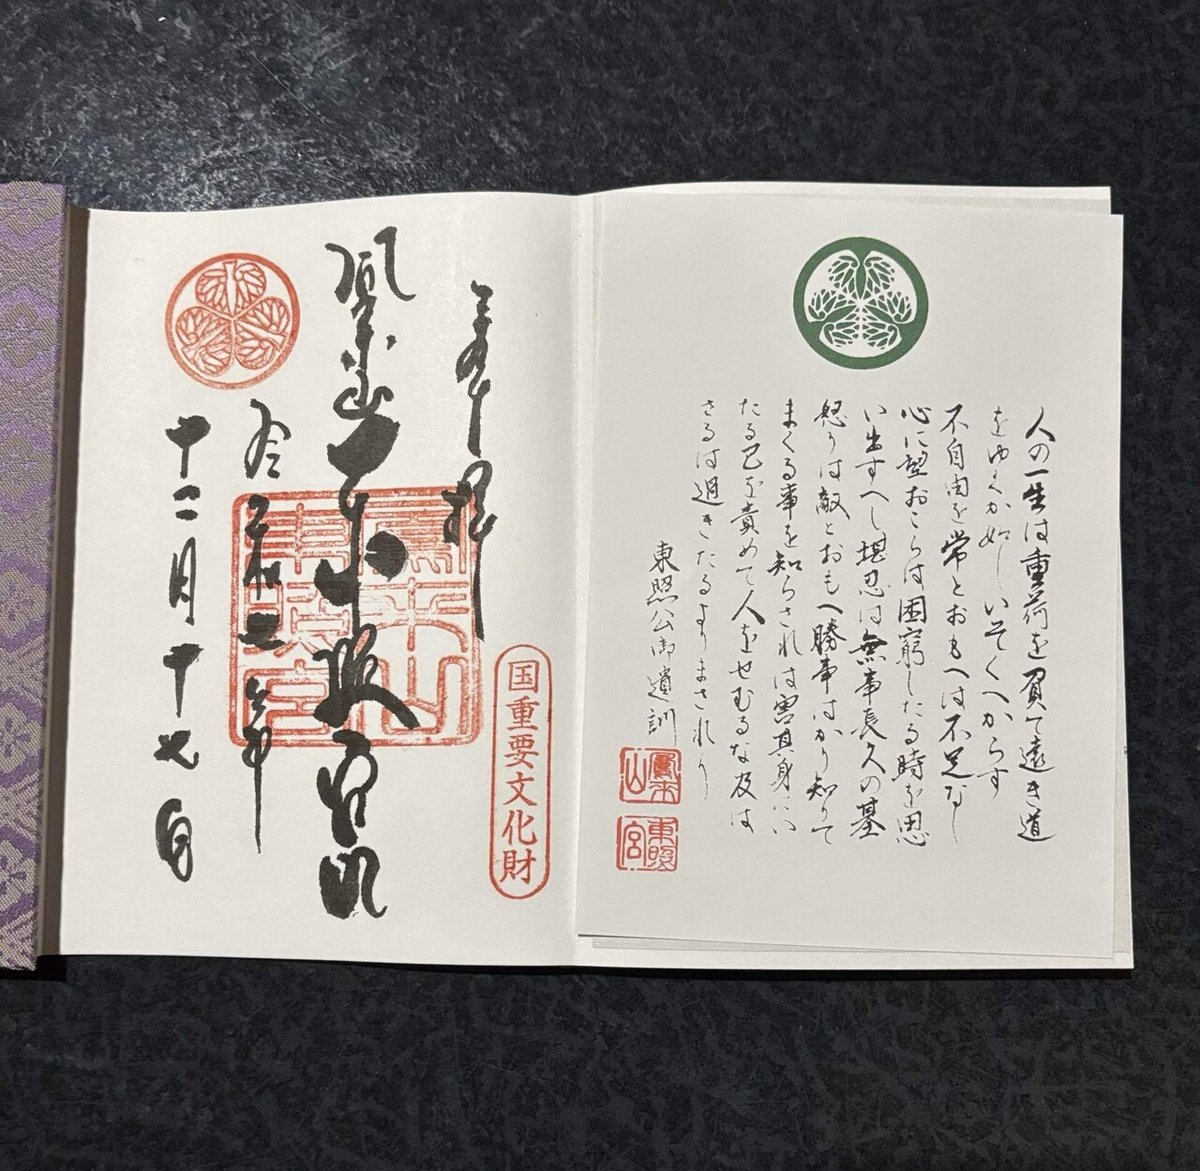 人の一生は重荷を負て遠き道
をゆくか如しいそくへからす
不自由を常とおもへは不足なし
心に望おこらは困窮したる時を思
い出すへし堪忍は無事長久の基
怒りは敵とおもへ勝事はかり知りて
まくる事を知らされは害其身にい
たる己を責めて人をせむるな及は
さるは過きたるよりまされり
東照公御遺訓
鳳来山
東照宮
国重要文化財
奉拝
鳳来山東照宮
鳳来山東照宮
令和年
十二月十七日